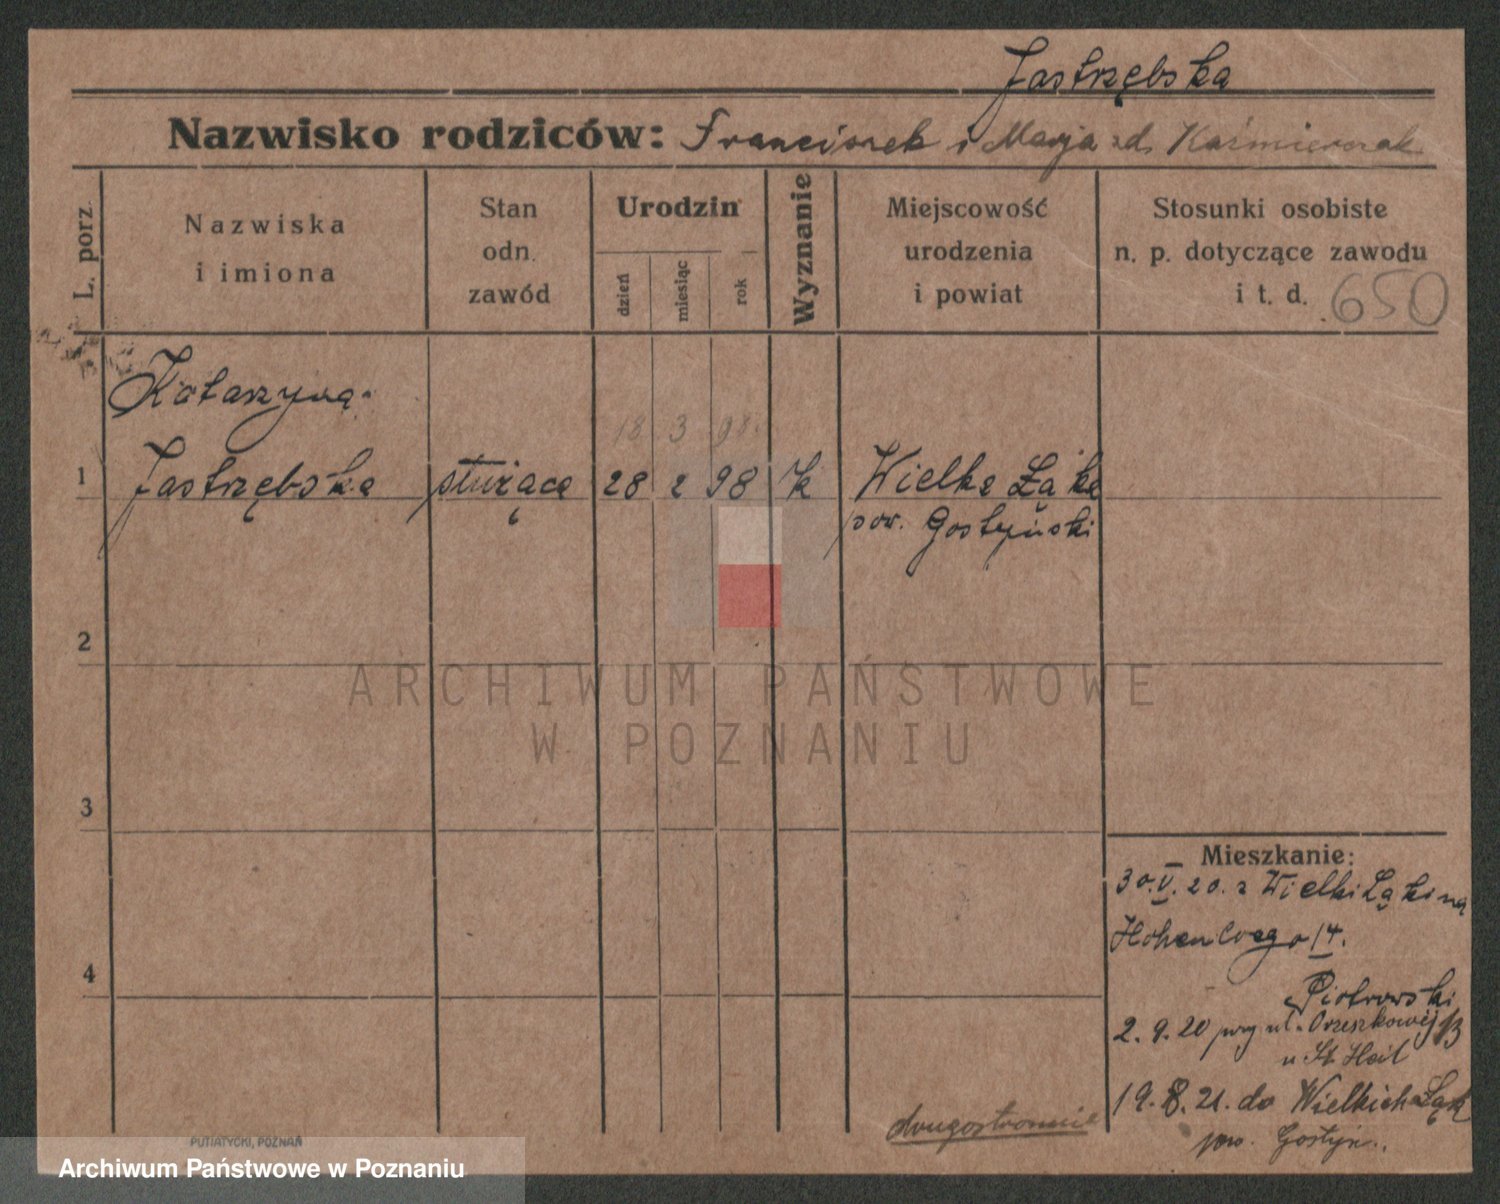 Jastrzębska
Nazwisko rodziców: Franciszek i Marja zd. Kaźmierczak
L. porz.
Nazwiska
i imiona
Stan
odn.
zawód
Urodzin
dzień
miesiąc
rok
Wyznanie
Miejscowość
urodzenia
i powiat
Stosunki osobiste
n. p. dotyczące zawodu
i t. d. 650
Katarzyna
18 3 98.
1 Jastrzębska służąca 28 2 98 k Wielka Łąka
pow. Gostyński
2
ARCHIWUM PAŃSTWOWE
W POZNANIU
3
Mieszkanie:
30.V.20. z Wielki Łąki na
Hohenloego 14.
4
Piotrowski
2.9.20 przy ul. Orzeszkowej 13
u St. Heil
19.8.21. do Wielkich Łąk
pow. Gostyn.
drugostronnie
PUTIATYCKI, POZNAŃ
Archiwum Państwowe w Poznaniu